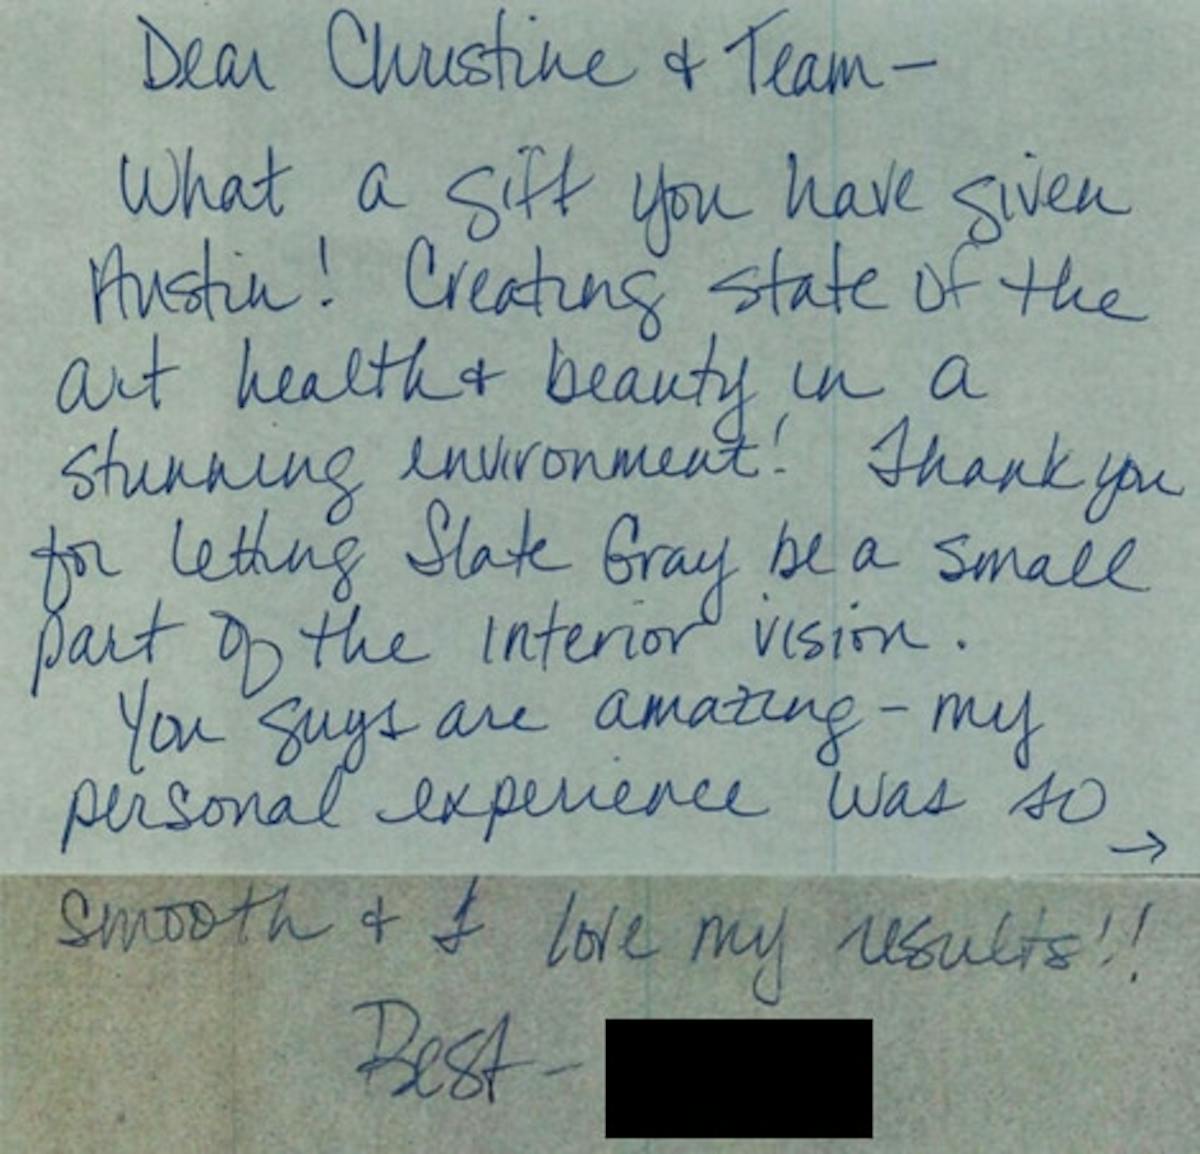 Dear Christine & Team –
What a gift you have given
Austin! Creating state of the
art health & beauty in a
stunning environment! Thank you
for letting Slate Gray be a small
part of the interior vision.
You guys are amazing – my
personal experience was so
→
smooth & I love my results!!
Best –